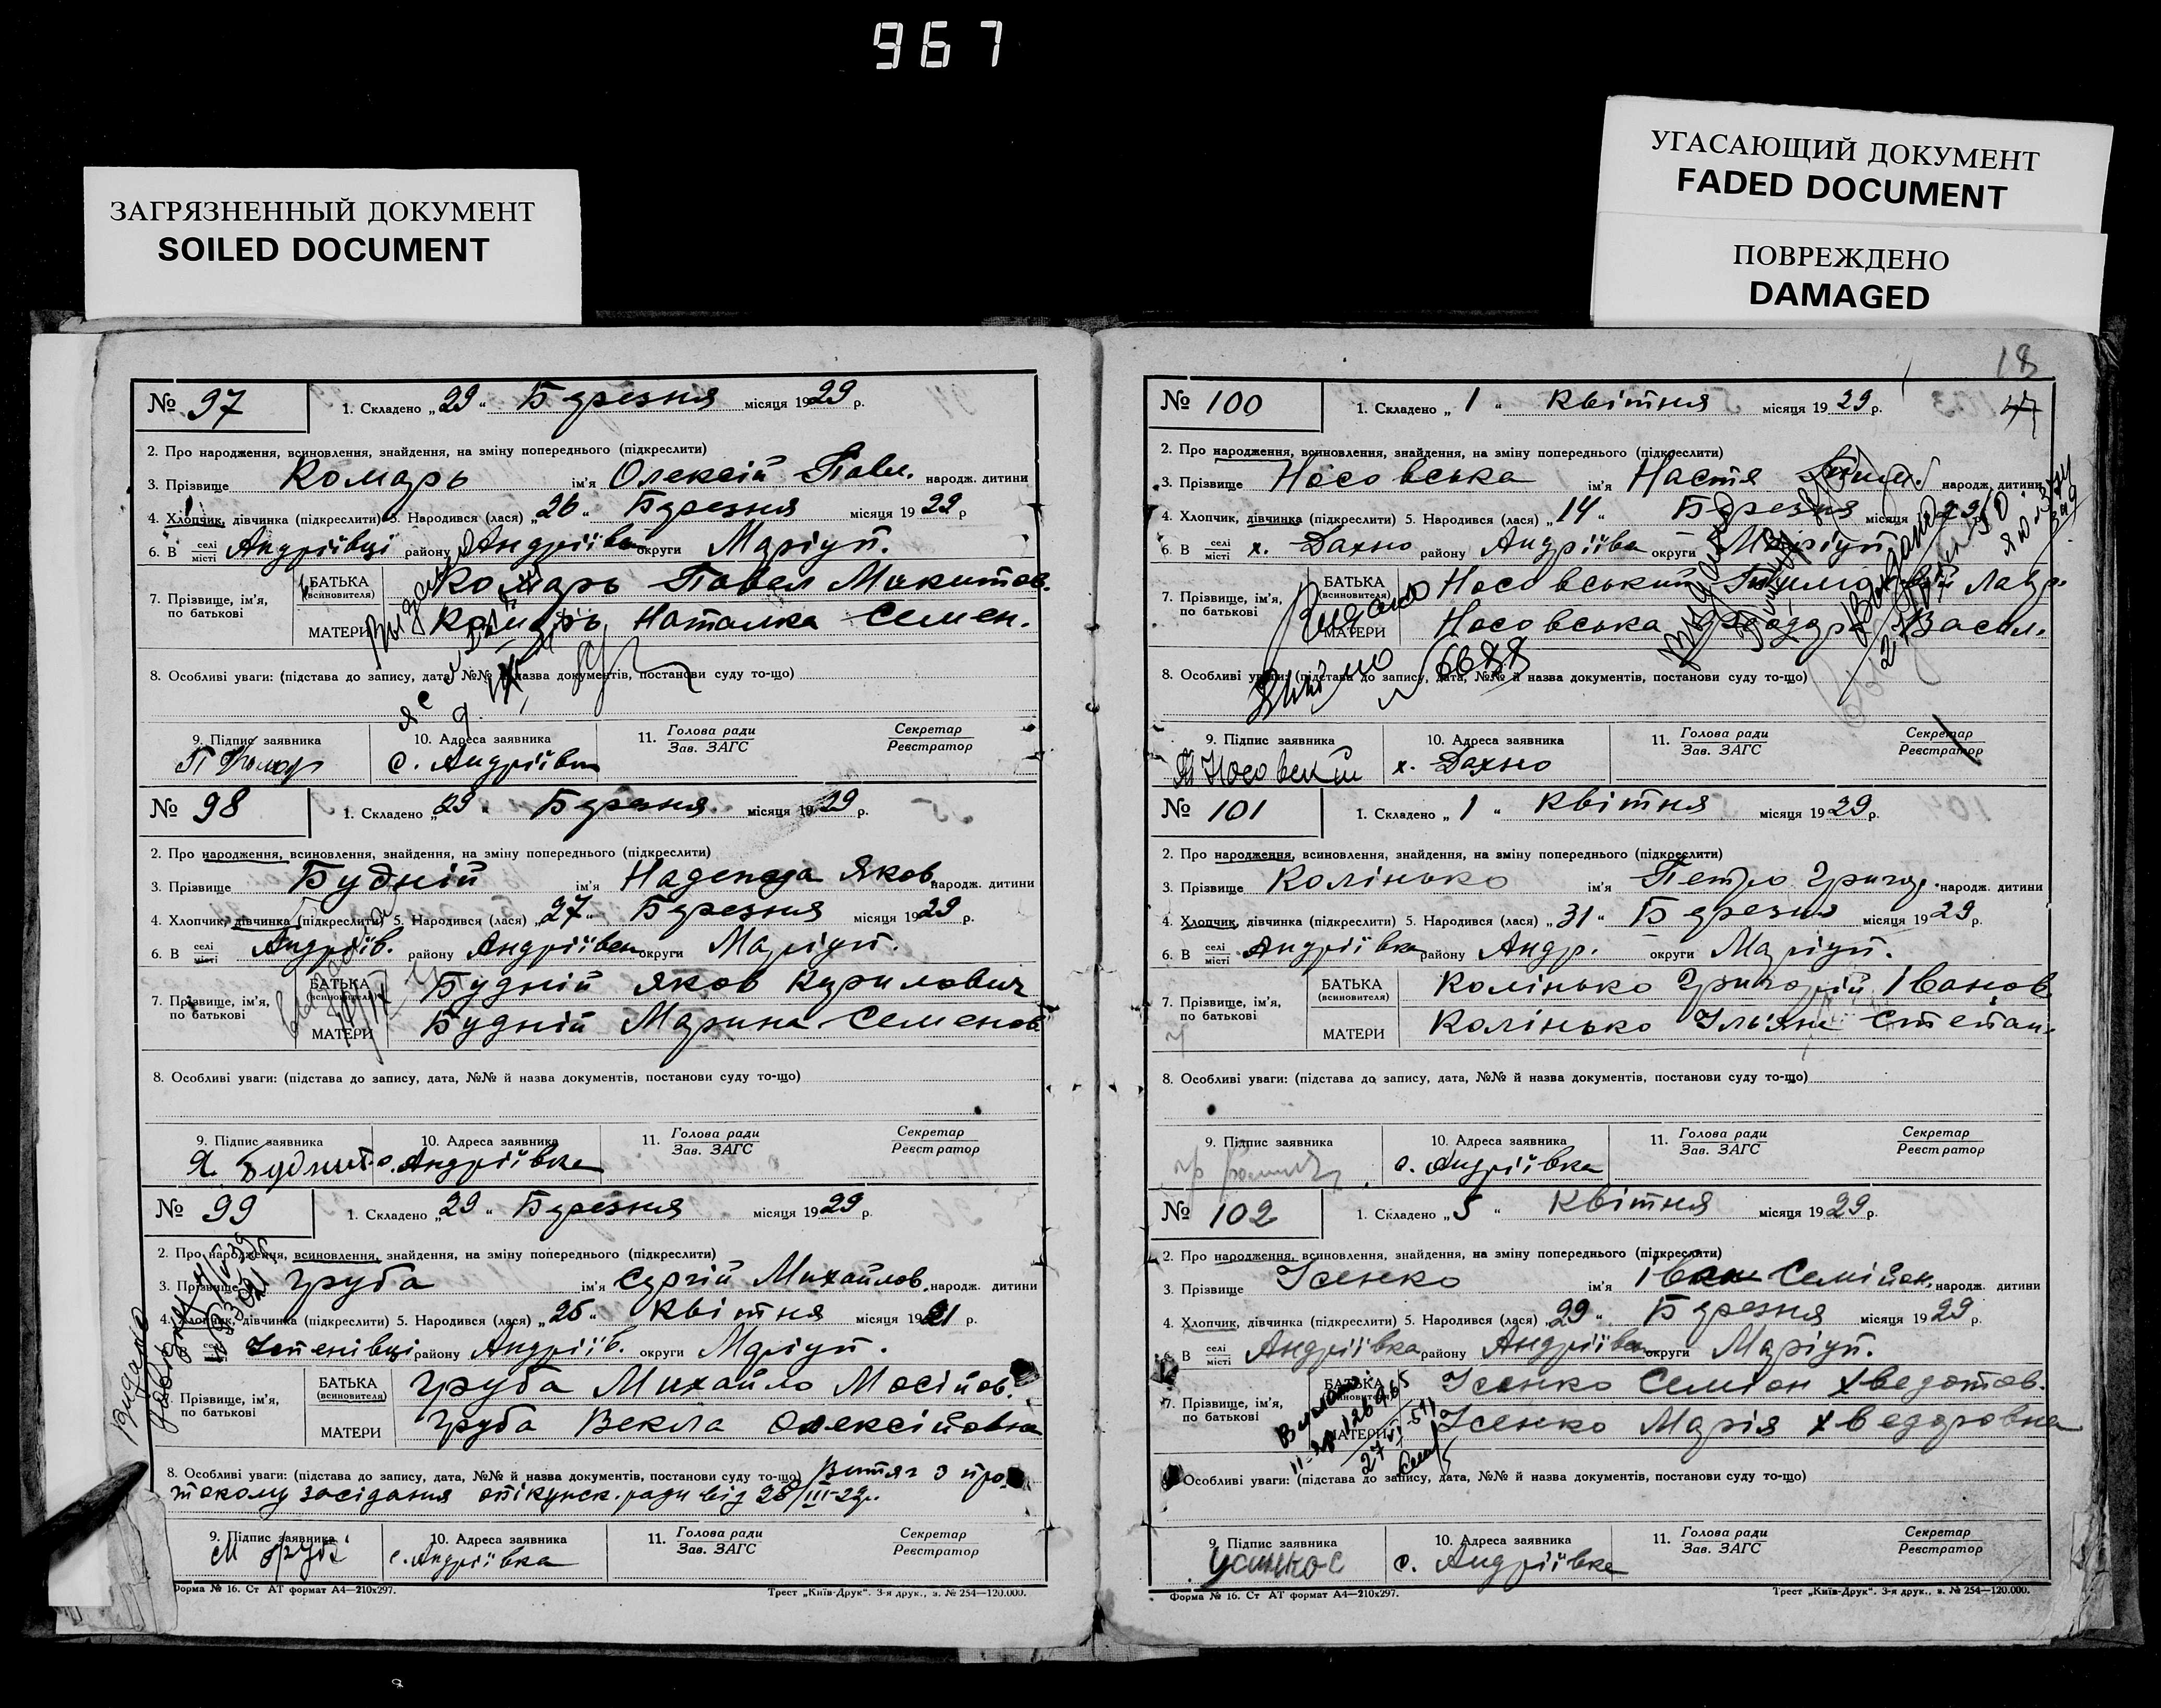 967
ЗАГРЯЗНЕННЫЙ ДОКУМЕНТ
SOILED DOCUMENT
УГАСАЮЩИЙ ДОКУМЕНТ
FADED DOCUMENT
ПОВРЕЖДЕНО
DAMAGED
№ 97
1. Складено „29“ Березня місяця 1929 р.
2. Про народження, всиновлення, знайдення, на зміну попереднього (підкреслити)
3. Прізвище Комарь ім'я Олексій Павл. народж. дитини
4. Хлопчик, дівчинка (підкреслити) 5. Народився (лася) „26“ Березня місяця 1929 р
6. В селі місті Андріївці району Андріївка округи Маріуп.
7. Прізвище, ім'я, по батькові
БАТЬКА (всиновителя) Комарь Павел Микитов.
МАТЕРИ Комарь Наталка Семен.
Выдано
8. Особливі уваги: (підстава до запису, дата, №№ й назва документів, постанови суду то-що)
9. Підпис заявника
10. Адреса заявника с. Андріївка
11. Голова ради Зав. ЗАГС
Секретар Реєстратор
№ 98
1. Складено „29“ Березня місяця 1929 р.
2. Про народження, всиновлення, знайдення, на зміну попереднього (підкреслити)
3. Прізвище Будній ім'я Надежда Яков. народж. дитини
4. Хлопчик, дівчинка (підкреслити) 5. Народився (лася) „27“ Березня місяця 1929 р.
6. В селі місті Андріїв. району Андріївка округи Маріуп.
7. Прізвище, ім'я, по батькові
БАТЬКА (всиновителя) Будній Яков Кирилович
МАТЕРИ Будній Марина Семенов.
8. Особливі уваги: (підстава до запису, дата, №№ й назва документів, постанови суду то-що)
9. Підпис заявника Я. Будний
10. Адреса заявника с. Андріївка
11. Голова ради Зав. ЗАГС
Секретар Реєстратор
№ 99
1. Складено „29“ Березня місяця 1929 р.
2. Про народження, всиновлення, знайдення, на зміну попереднього (підкреслити)
3. Прізвище Груба ім'я Сергій Михайлов. народж. дитини
4. Хлопчик, дівчинка (підкреслити) 5. Народився (лася) „25“ Квітня місяця 1921 р.
селі місті району Андріїв. округи Маріуп.
Прізвище, ім'я, по батькові
БАТЬКА (всиновителя) Груба Михайло Мосійов.
МАТЕРИ Груба Векла Олексійовна
Видано
8. Особливі уваги: (підстава до запису, дата, №№ й назва документів, постанови суду то-що) Витяг з про-
токолу засідання опікунск. ради від 28/III-29р.
9. Підпис заявника М Груба
10. Адреса заявника с. Андріївка
11. Голова ради Зав. ЗАГС
Секретар Реєстратор
Форма № 16. Ст АТ формат А4—210x297.
Трест „Київ-Друк“. 3-я друк., з. № 254—120.000.
18
47
№ 100
1. Складено „1“ Квітня місяця 1929 р.
2. Про народження, всиновлення, знайдення, на зміну попереднього (підкреслити)
3. Прізвище Носовська ім'я Настя Тим. народж. дитини
4. Хлопчик, дівчинка (підкреслити) 5. Народився (лася) „14“ Березня місяця 29
6. В селі місті х. Дахно району Андріївка округи Маріуп.
7. Прізвище, ім'я, по батькові
БАТЬКА (всиновителя) Носовський Лавр.
МАТЕРИ Носовська Васил.
Видано
8. Особливі уваги: (підстава до запису, дата, №№ й назва документів, постанови суду то-що)
9. Підпис заявника
10. Адреса заявника х. Дахно
11. Голова ради Зав. ЗАГС
Секретар Реєстратор
№ 101
1. Складено „1“ Квітня місяця 1929 р.
2. Про народження, всиновлення, знайдення, на зміну попереднього (підкреслити)
3. Прізвище Колінько ім'я Петро Григор. народж. дитини
4. Хлопчик, дівчинка (підкреслити) 5. Народився (лася) „31“ Березня місяця 1929 р.
6. В селі місті Андріївка району Андр. округи Маріуп.
7. Прізвище, ім'я, по батькові
БАТЬКА (всиновителя) Колінько Григорій Іванов.
МАТЕРИ Колінько Степан.
8. Особливі уваги: (підстава до запису, дата, №№ й назва документів, постанови суду то-що)
9. Підпис заявника
10. Адреса заявника с. Андріївка
11. Голова ради Зав. ЗАГС
Секретар Реєстратор
№ 102
1. Складено „5“ Квітня місяця 1929 р.
2. Про народження, всиновлення, знайдення, на зміну попереднього (підкреслити)
3. Прізвище Усенко ім'я Іван Семійон. народж. дитини
4. Хлопчик, дівчинка (підкреслити) 5. Народився (лася) „29“ Березня місяця 1929 р.
В селі місті Андріївка району Андріївка округи Маріуп.
7. Прізвище, ім'я, по батькові
БАТЬКА (всиновителя) Усенко Семіон Хведотов.
МАТЕРИ Усенко Марія Хведоровна
Особливі уваги: (підстава до запису, дата, №№ й назва документів, постанови суду то-що)
9. Підпис заявника
10. Адреса заявника с. Андріївка
11. Голова ради Зав. ЗАГС
Секретар Реєстратор
Форма № 16. Ст АТ формат А4—210x297.
Трест „Київ-Друк“. 3-я друк., в. № 254—120.000.